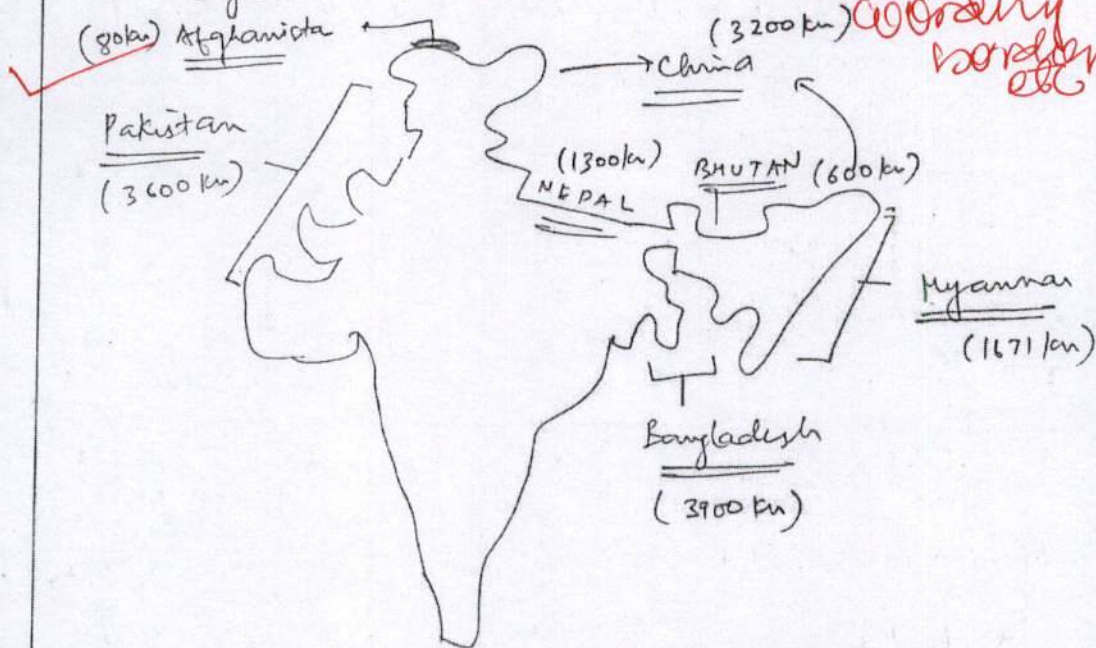 (80km) Afghanista
(3200km)
China
Pakistan
(3600km)
(1300km)
NEPAL
BHUTAN (600km)
Myanmar
(1671km)
Bangladesh
(3900km)
etc